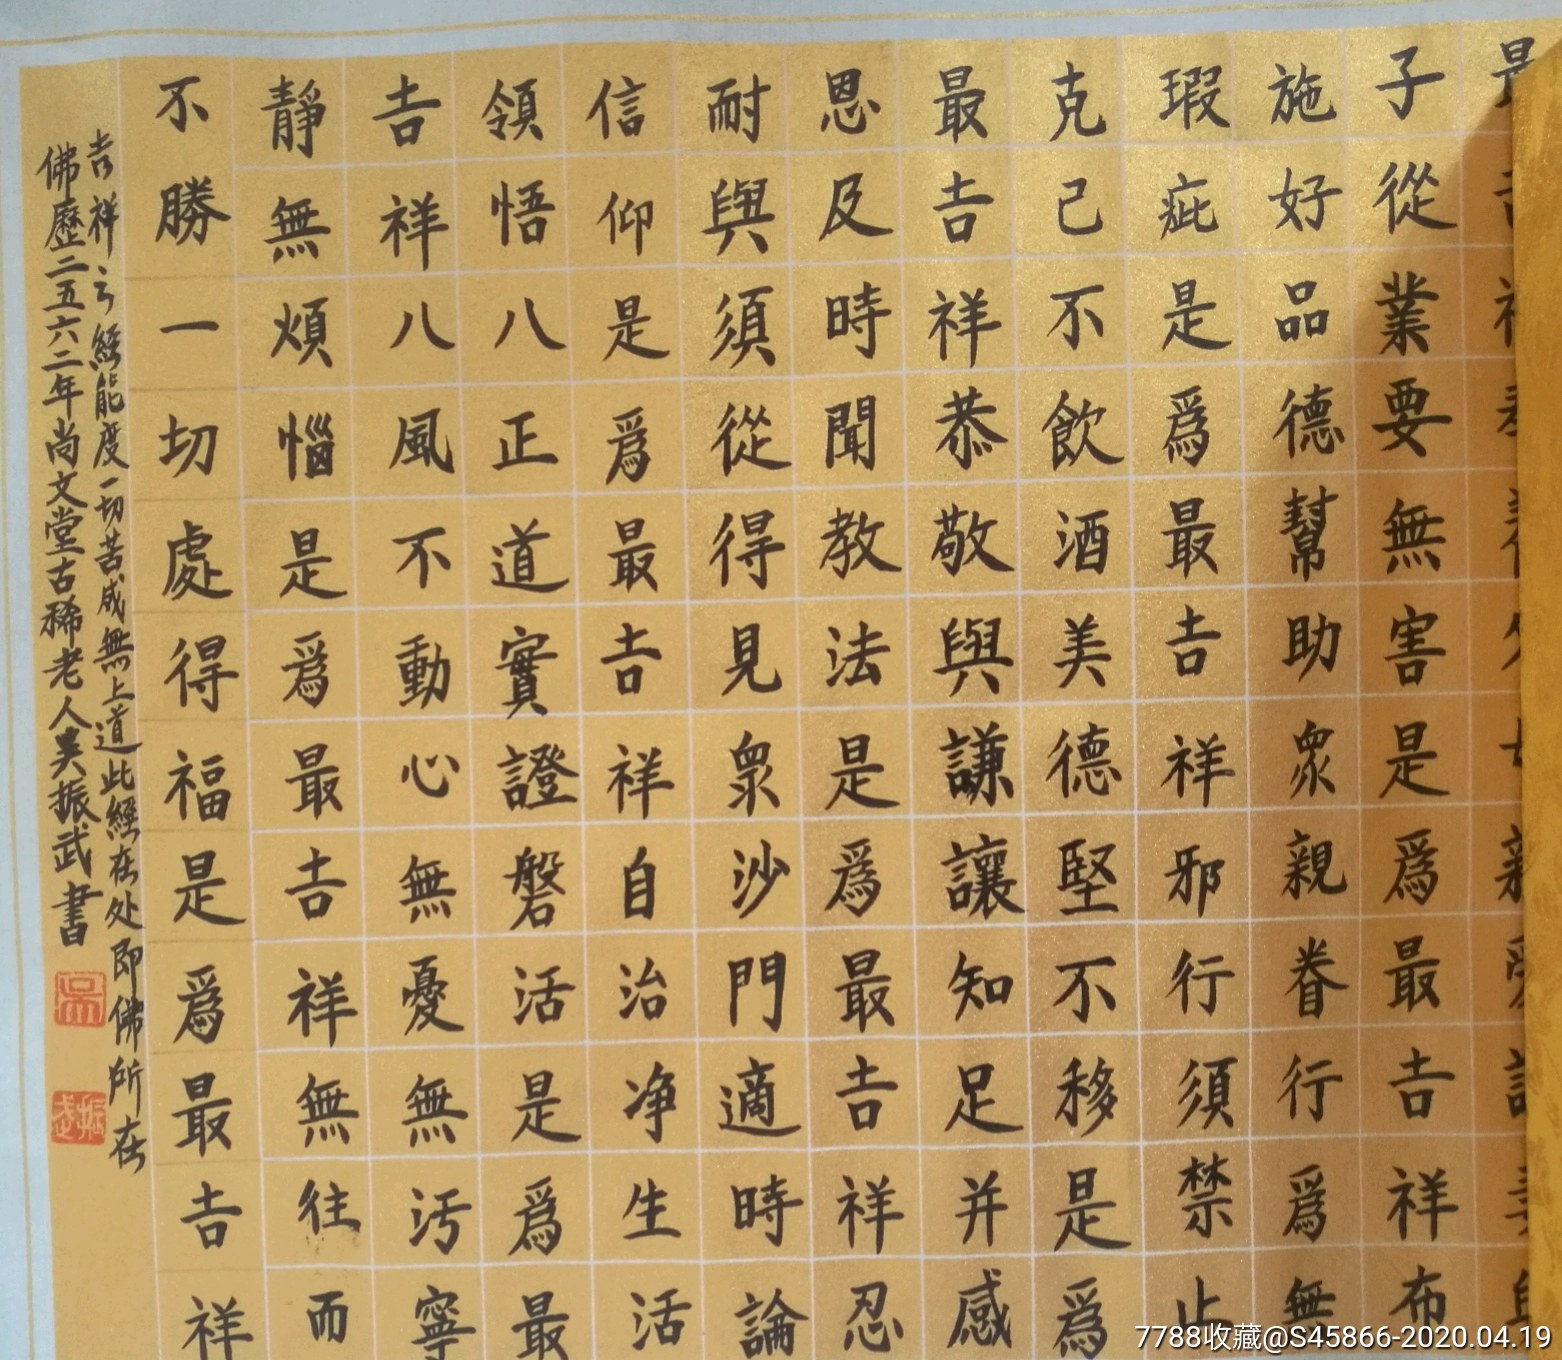 子從業要無害是爲最吉祥布
施好品德幫助眾親眷行爲無
瑕疵是爲最吉祥邪行須禁止
克己不飲酒美德堅不移是爲
最吉祥恭敬與謙讓知足并感
恩及時聞教法是爲最吉祥忍
耐與須從得見眾沙門適時論
信仰是爲最吉祥自治净生活
領悟八正道實證磐活是爲最
吉祥八風不動心無憂無污寧
靜無煩惱是爲最吉祥無往而
不勝一切處得福是爲最吉祥
吉祥之經能度一切苦成無上道此經在处即佛所在
佛歷二五六二年尚文堂古稀老人吴振武書
7788收藏@S45866-2020.04.19